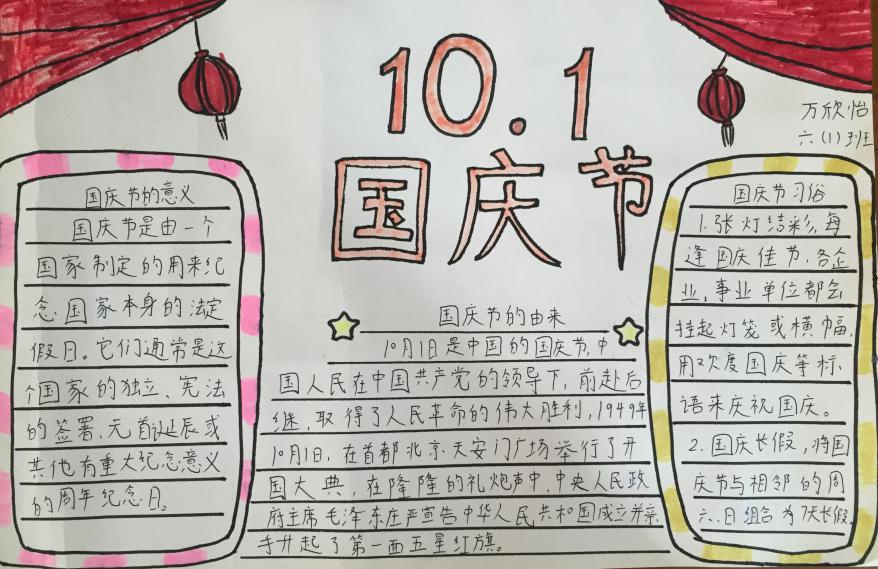 10.1
国庆节
万欣怡
六(1)班
国庆节的意义
国庆节是由一个
国家制定的用来纪
念国家本身的法定
假日。它们通常是这
个国家的独立、宪法
的签署、元首诞辰或
其他有重大纪念意义
的周年纪念日。
国庆节的由来
10月1日是中国的国庆节,中
国人民在中国共产党的领导下,前赴后
继,取得了人民革命的伟大胜利,1949年
10月1日,在首都北京天安门广场举行了开
国大典,在隆隆的礼炮声中,中央人民政
府主席毛泽东庄严宣告中华人民共和国成立并亲
手升起了第一面五星红旗。
国庆节习俗
1.张灯结彩,每
逢国庆佳节,各企
业,事业单位都会
挂起灯笼或横幅,
用欢度国庆等标
语来庆祝国庆。
2.国庆长假,将国
庆节与相邻的周
六、日组合为7天长假。